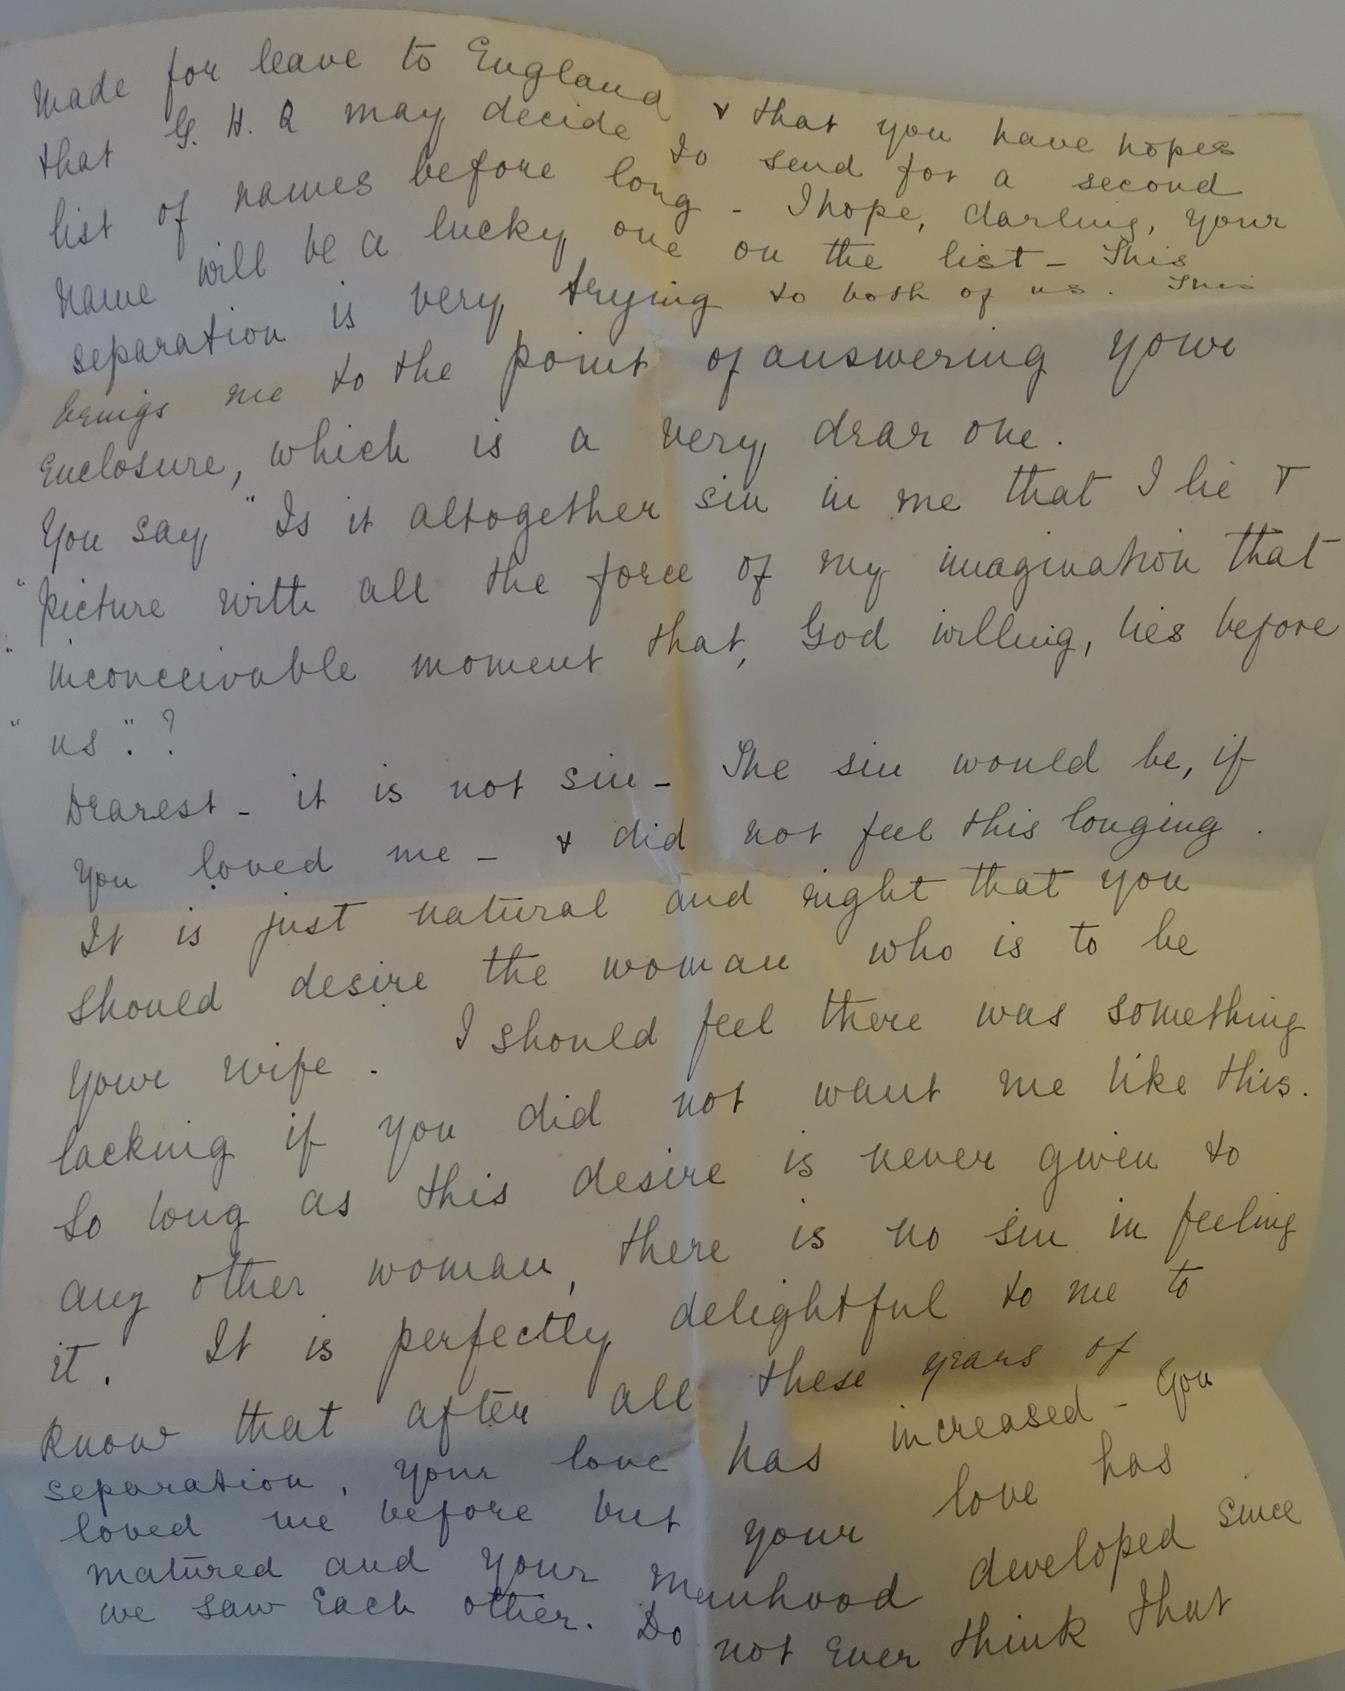 made for leave to England & that you have hopes
that G. H. Q may decide to send for a second
list of names before long - I hope, darling, your
name will be a lucky one on the list - This
separation is very trying to both of us. This
brings me to the point of answering your
Enclosure, which is a very dear one.
You say "Is it altogether sin in me that I lie &
" picture with all the force of my imagination that
" inconceivable moment that, God willing, lies before
" us". ?
Dearest - it is not sin - The sin would be, if
you loved me - & did not feel this longing.
It is just natural and right that you
should desire the woman who is to be
your wife. I should feel there was something
lacking if you did not want me like this.
So long as this desire is never given to
any other woman, there is no sin in feeling
it. It is perfectly delightful to me to
know that after all these years of
separation, your love has increased - You
loved me before but your love has
matured and your manhood developed since
we saw Each other. Do not Ever think that